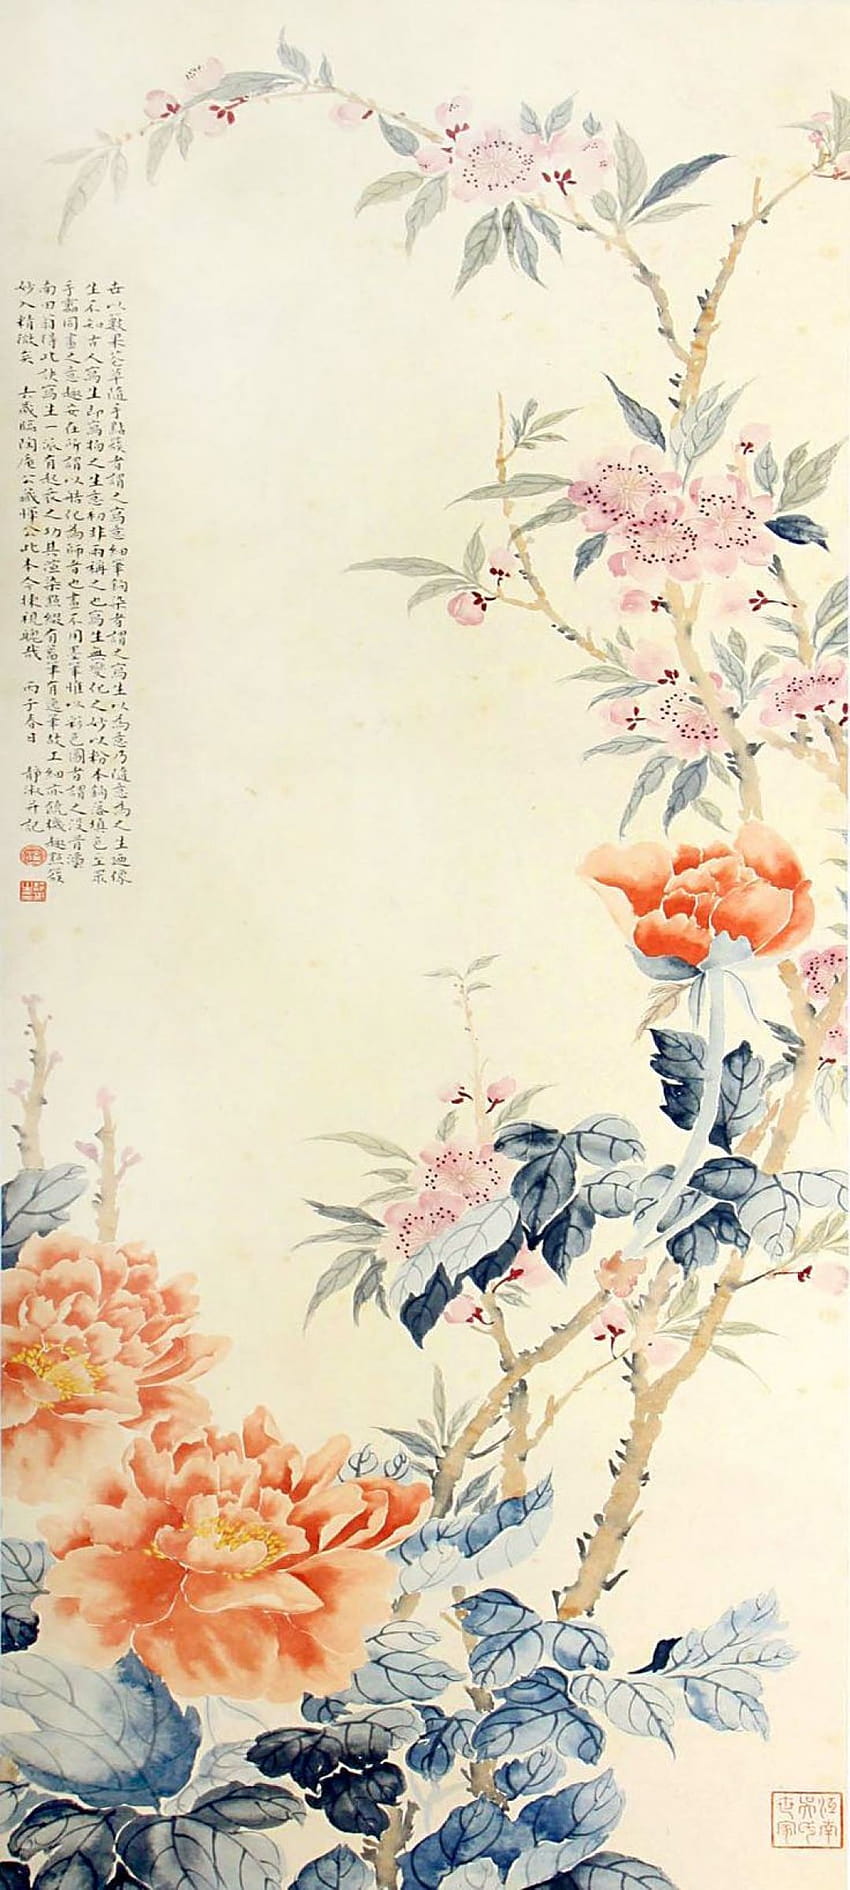 世以數朵花草隨手點簇者謂之寫意細筆鉤染者謂之寫生以為意乃隨意為之生迺像
生不知古人寫生即寫物之生意初非兩稱之也寫生無變化之妙以粉本鉤落填色至眾
手雷同畫之意趣安在所謂以造化為師者也畫不用墨筆惟以彩色圖者謂之沒骨畫
南田翁得此使寫生一派有起衰之功其渲染點綴有蓄筆有逸筆故工細亦饒機趣點簇
妙入精微矣 去歲臨陶庵公藏惲公此本今 丙子春日 靜淑并記
江南吳氏世家